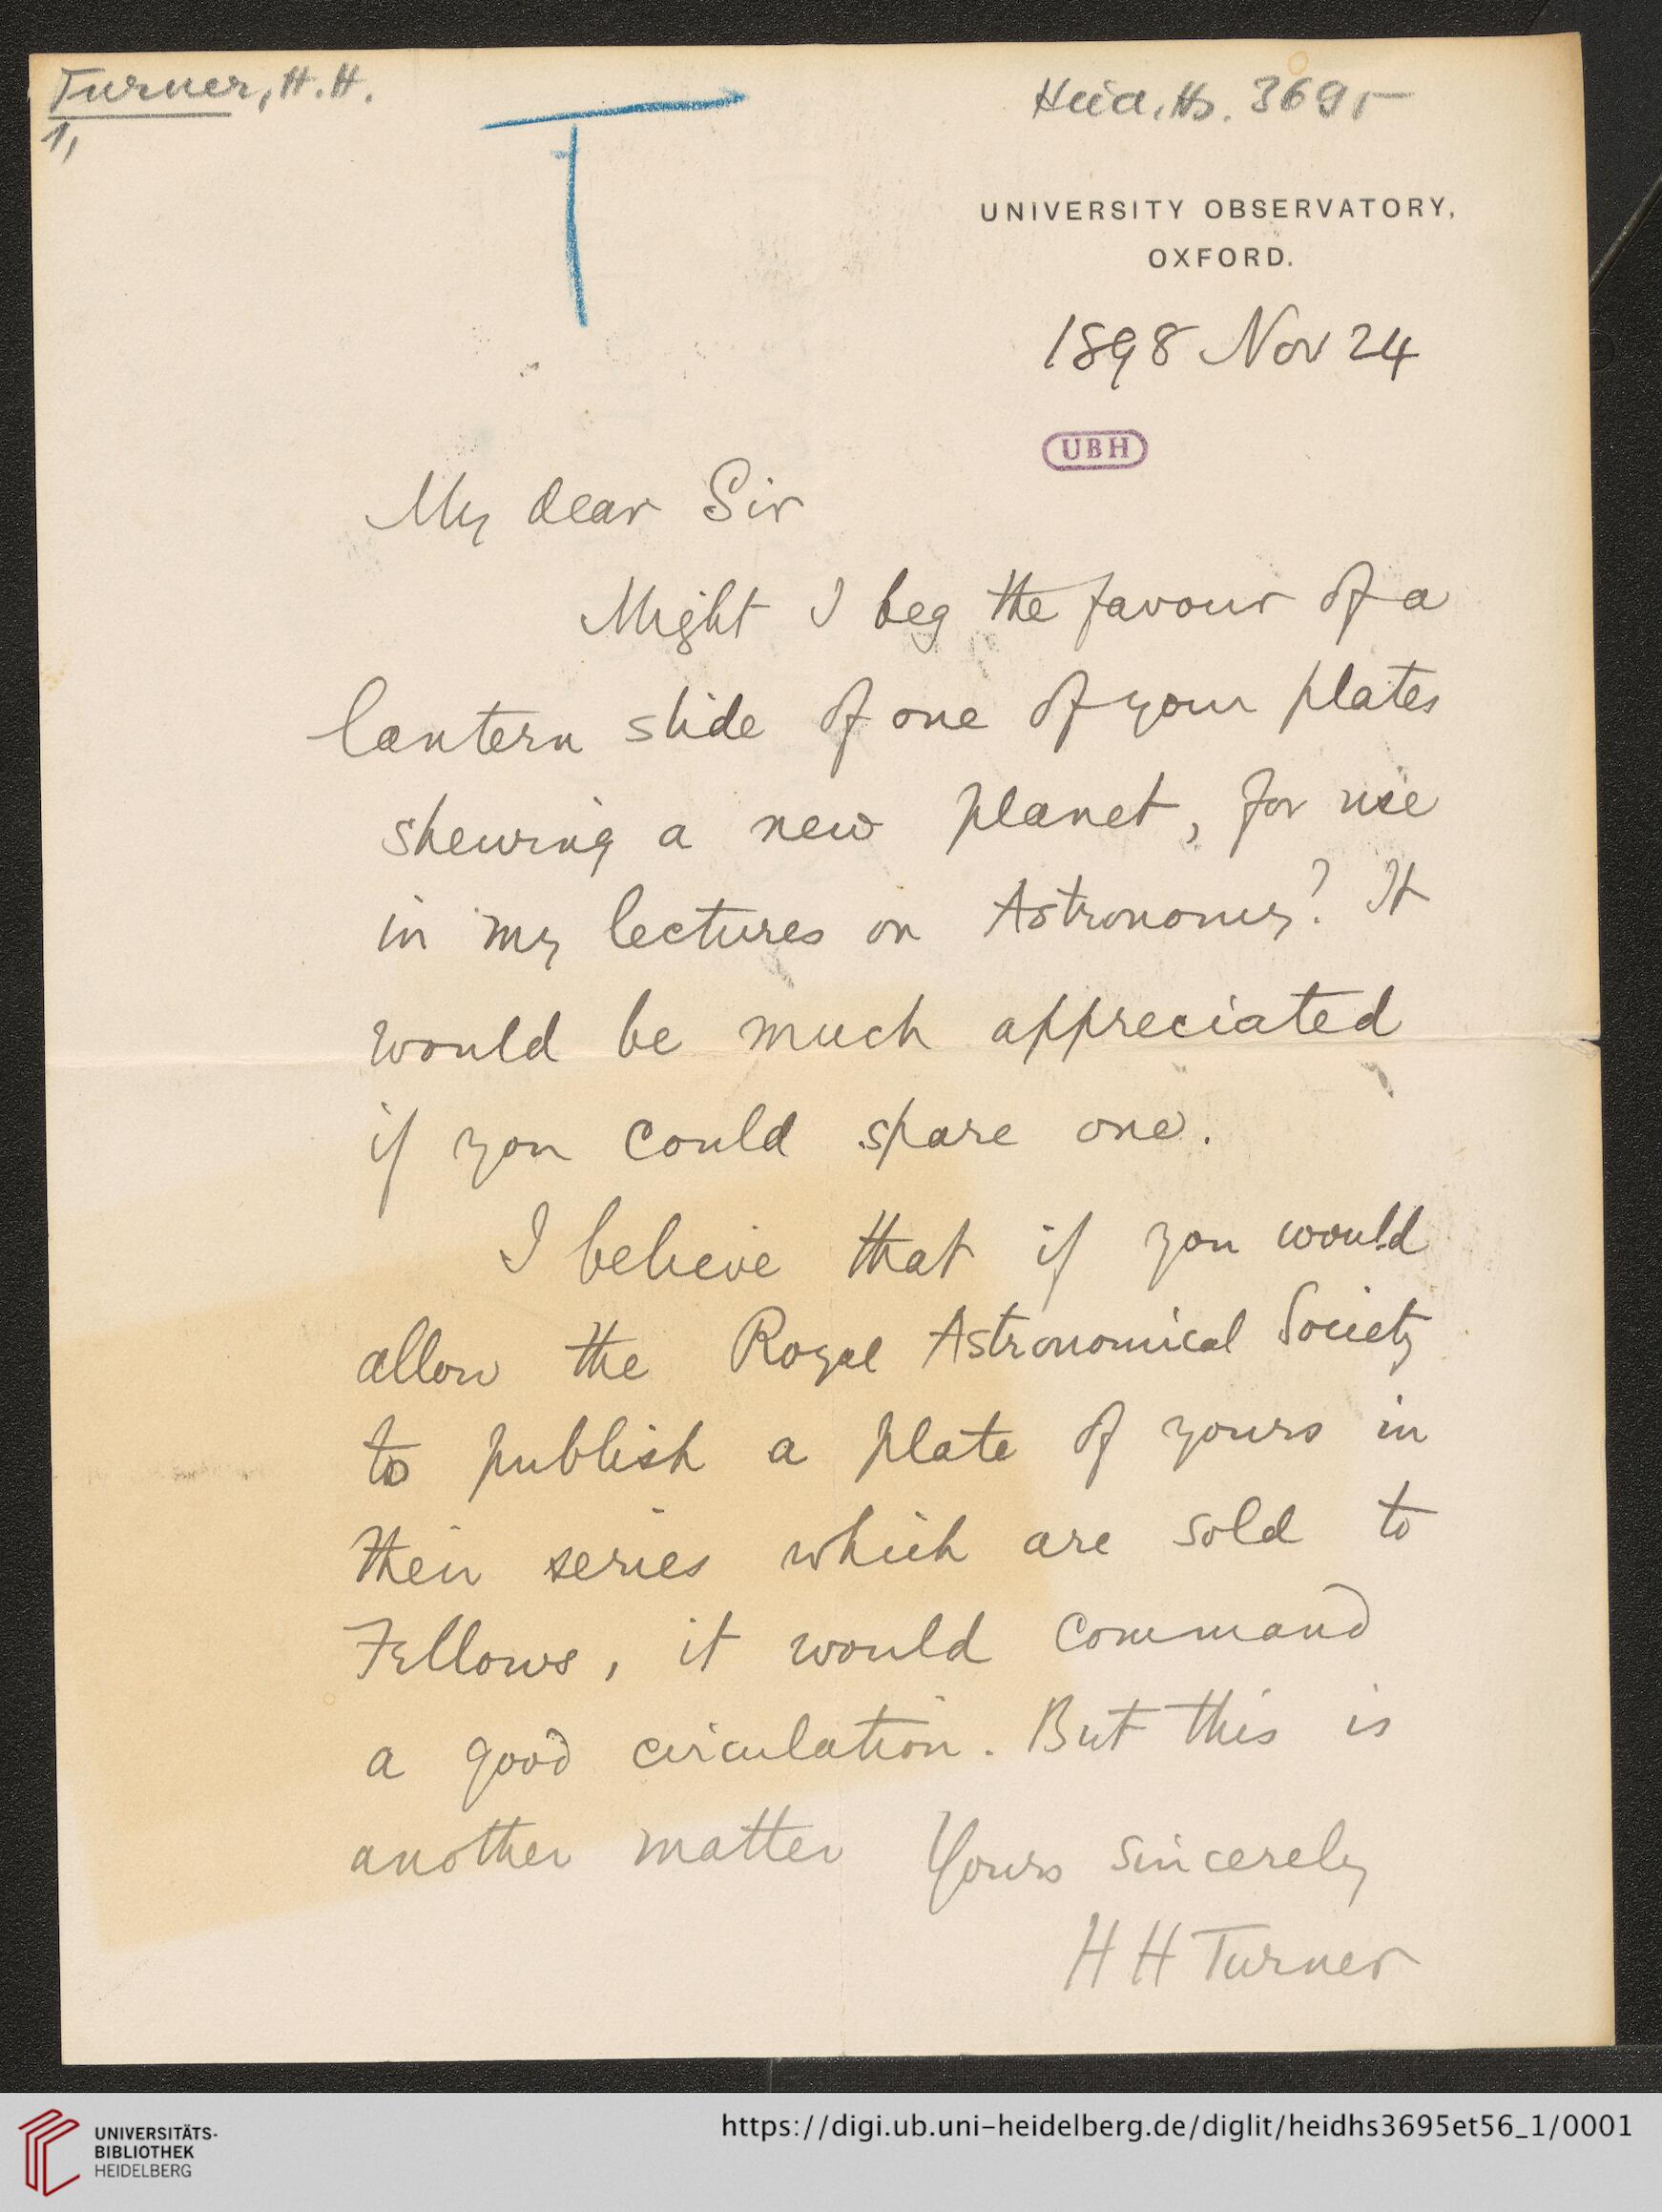 Turner, H. H.
1,
T
Heid. Hs. 3695
UNIVERSITY OBSERVATORY,
OXFORD.
1898 Nov 24
UBH
My dear Sir
Might I beg the favour of a
lantern slide of one of your plates
shewing a new planet, for use
in my lectures on Astronomy? It
would be much appreciated
if you could spare one.
I believe that if you would
allow the Royal Astronomical Society
to publish a plate of yours in
their series which are sold to
Fellows, it would command
a good circulation. But this is
another matter Yours sincerely
H H Turner
UNIVERSITÄTS-
BIBLIOTHEK
HEIDELBERG
https://digi.ub.uni-heidelberg.de/diglit/heidhs3695et56_1/0001